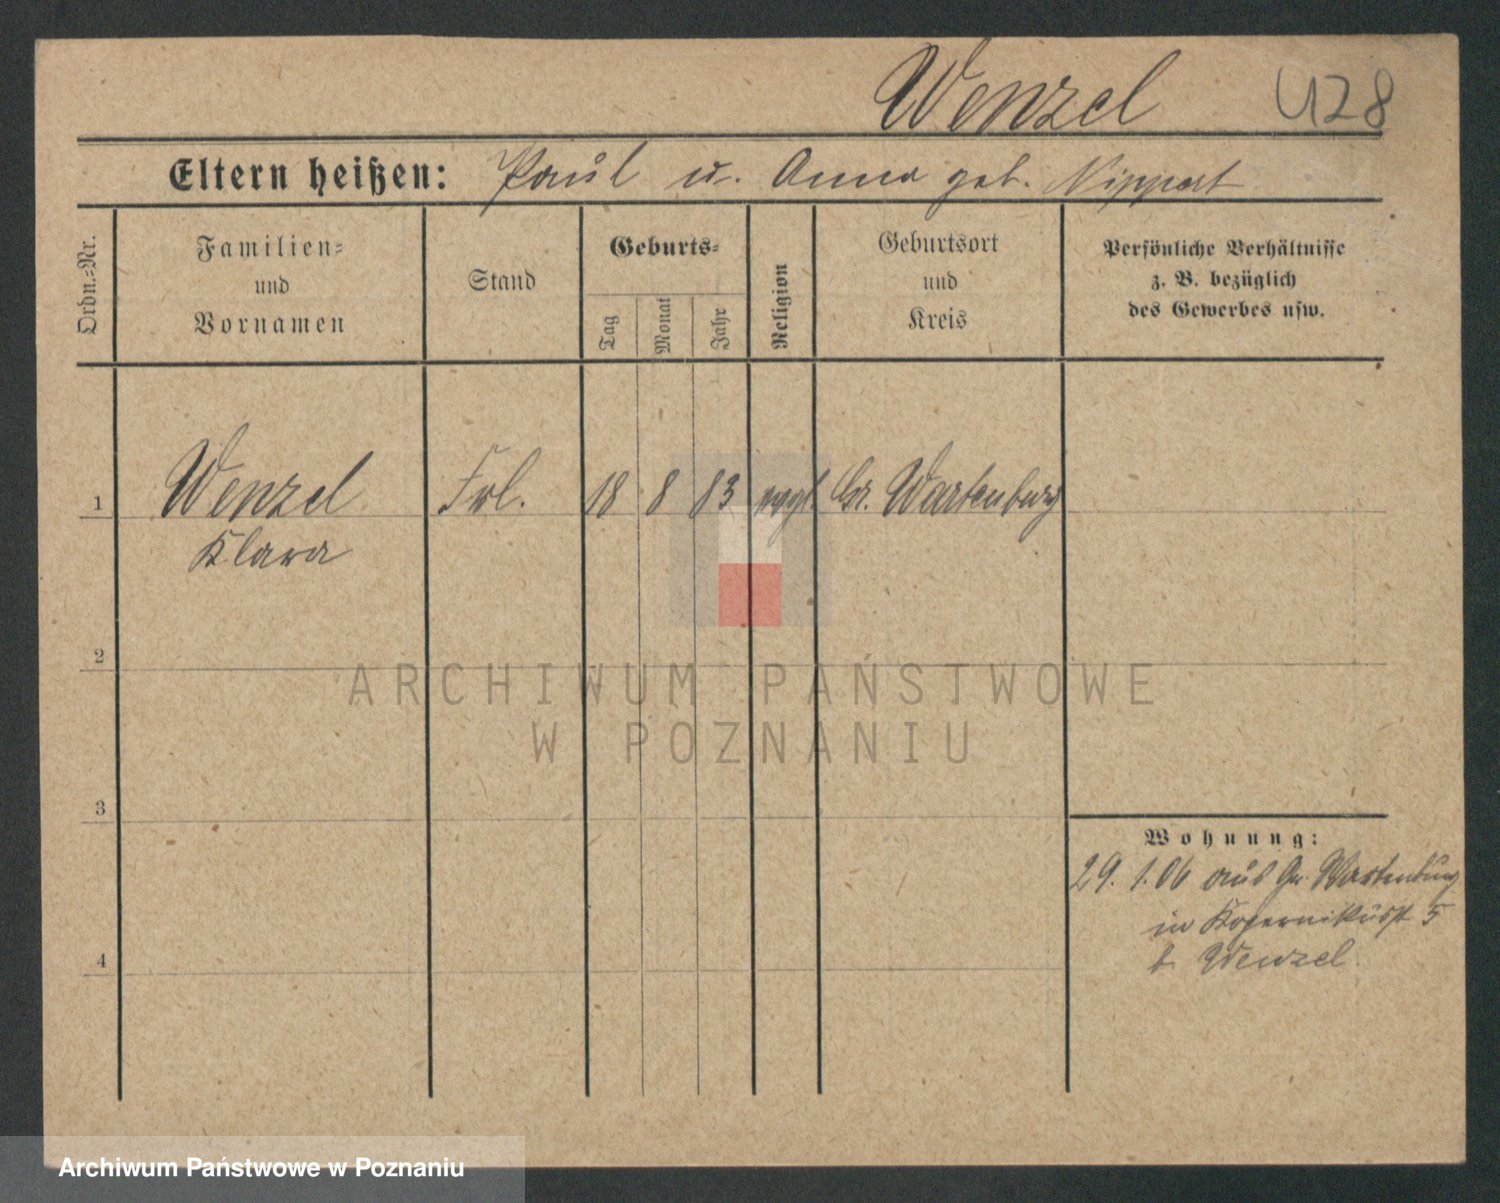 Wenzel 428
Eltern heißen: Paul u. Anna geb. Nippert
Ordn.=Nr.
Familien=
und
Vornamen
Stand
Geburts=
Tag
Monat
Jahr
Religion
Geburtsort
und
Kreis
Persönliche Verhältnisse
z. B. bezüglich
des Gewerbes usw.
1 Wenzel Frl. 18 8 83 evgl Gr. Wartenburg
Klara
2
ARCHIWUM PAŃSTWOWE
W POZNANIU
3
Wohnung:
29. 1. 06 aus Gr. Wartenburg
in Kopernikusst 5
4
b. Wenzel.
Archiwum Państwowe w Poznaniu